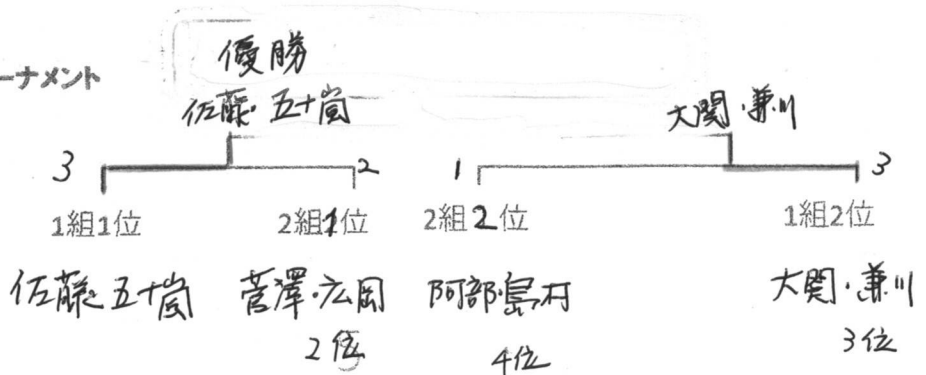 優勝
ーナメント
佐藤・五十嵐 大関・兼川
3 2 1 3
1組1位 2組1位 2組2位 1組2位
佐藤・五十嵐 菅澤・広岡 阿部・島村 大関・兼川
2位 4位 3位